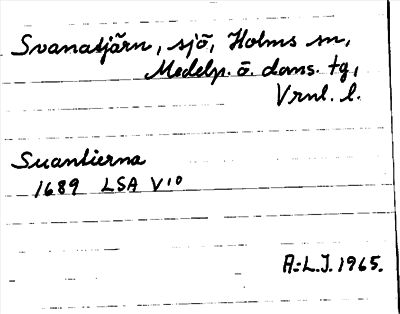 Svanatjärn, sjö, Holms sn,
Medelp. ö. doms. tg,
Vrnl. l.
Suantierna
1689 LSA V10
A:L.J. 1965.